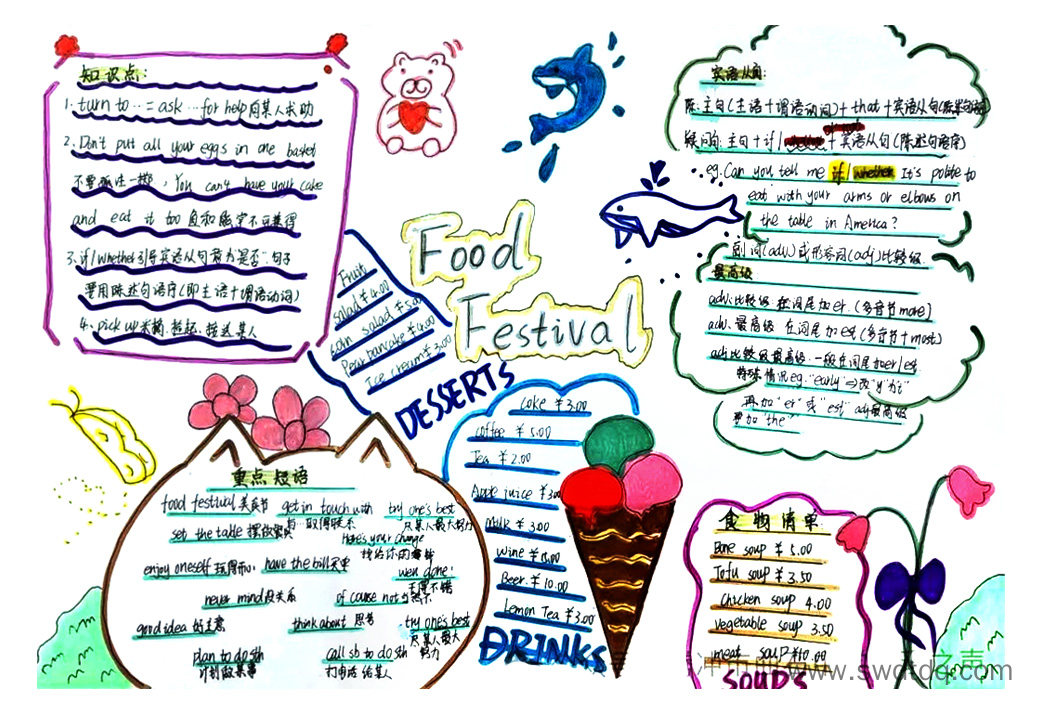 知识点:
1. turn to … = ask … for help 向某人求助
2. Don't put all your eggs in one basket
不要孤注一掷, You can't have your cake
and eat it too 鱼和熊掌不可兼得
3. if/whether 引导宾语从句 意为"是否" 句子
要用陈述句语序(即主语+谓语动词)
4. pick up 采摘 捡起, 接送某人
Food
Festival
Fruit
salad ¥4.00
corn salad ¥5.00
Pear pancake ¥4.00
Ice cream ¥3.00
DESSERTS
宾语从句:
陈: 主句(主语+谓语动词)+ that +宾语从句(陈述句语序)
疑问句: 主句+if/ +宾语从句(陈述句语序)
eg. Can you tell me if/whether It's polite to
eat with your arms or elbows on
the table in America?
副词(adv)或形容词(adj)比较级
最高级
adv.比较级 在词尾加er.(多音节more)
adv.最高级 在词尾加est(多音节+most)
adj比较级最高级:一般在词尾加er/est
特殊情况eg."early"⇒改"y"为"i"
再加"er"或"est" adj最高级
要加"the"
重点短语
food festival 美食节 get in touch with 与…取得联系 try one's best 尽某人最大努力
set the table 摆放餐具 Here's your change 找给你的零钱
enjoy oneself 玩得开心 have the bill 买单 well done! 干得不错
never mind 没关系 of course not 当然不
good idea 好主意 think about 思考 try one's best 尽某人最大努力
plan to do sth 计划做某事 call sb to do sth 打电话给某人
coke ¥3.00
coffee ¥5.00
Tea ¥2.00
Apple juice ¥3.00
Milk ¥3.00
wine
Beer. ¥10.00
Lemon Tea ¥3.00
DRINKS
食物清单
Bone soup ¥5.00
Tofu soup ¥3.50
Chicken soup 4.00
vegetable soup 3.50
meat soup ¥10.00
SOUPS
www.swdtdq.com
之声